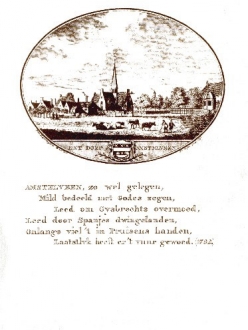 HET DORP AMSTELVEEN.
AMSTELVEEN, zo wel gelegen,
Mild bedeeld met Godes zegen,
Leed om Gysbrechts overmoed,
Leed door Spanjes dwingelanden,
Onlangs viel 't in Pruisens handen,
Laatstlyk heeft er 't vuur gewoed.